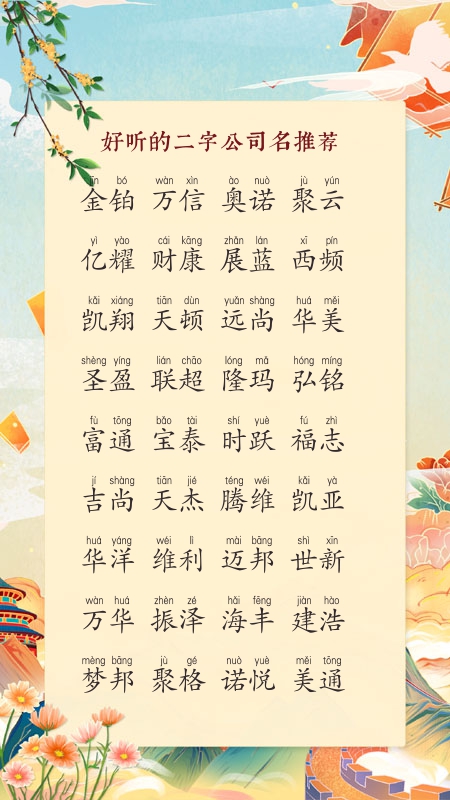 好听的二字公司名推荐
jīn bó wàn xìn ào nuò jù yún
金铂 万信 奥诺 聚云
yì yào cái kāng zhǎn lán xī pín
亿耀 财康 展蓝 西频
kǎi xiáng tiān dùn yuǎn shàng huá měi
凯翔 天顿 远尚 华美
shèng yíng lián chāo lóng mǎ hóng míng
圣盈 联超 隆玛 弘铭
fù tōng bǎo tài shí yuè fú zhì
富通 宝泰 时跃 福志
jí shàng tiān jié téng wéi kǎi yà
吉尚 天杰 腾维 凯亚
huá yáng wéi lì mài bāng shì xīn
华洋 维利 迈邦 世新
wàn huá zhèn zé hǎi fēng jiàn hào
万华 振泽 海丰 建浩
mèng bāng jù gé nuò yuè měi tōng
梦邦 聚格 诺悦 美通